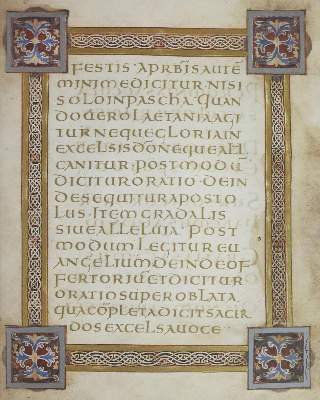 FESTIS · A PRBIS AUTĒ
MINIME DICITUR NISI
SOLO IN PASCHA · QUAN
DO UERO LAETANIA AGI
TUR NEQUE GLORIA IN
EXCELSIS DŌ NEQUE ALL
CANITUR · POSTMODŪ
DICITUR ORATIO · DEIN
DE SEQUITUR APOSTO
LUS · ITEM GRADALIS
SIUE ALLELUIA · POST
MODUM LEGITUR EU
ANGELIUM DEINDE OF
FERTORIŪ ET DICITUR
ORATIO SUPER OBLATA
QUA CŌPLETA DICIT SACER
DOS EXCELSA UOCE